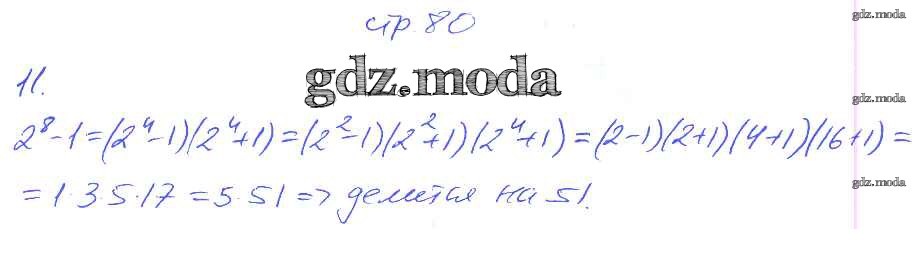 стр. 80
gdz.moda
11.
gdz.moda
gdz.moda
2⁸-1=(2⁴-1)(2⁴+1)=(2²-1)(2²+1)(2⁴+1)=(2-1)(2+1)(4+1)(16+1)=
=1·3·5·17=5·51=> делится на 51.
gdz.moda